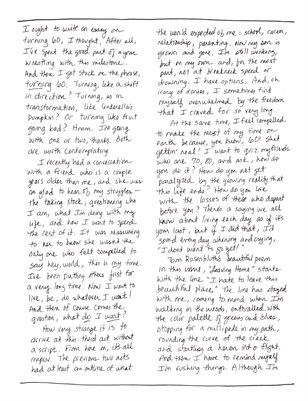 I ought to write an essay on
turning 60, I thought. After all,
I've spent the good part of a year
wrestling with this milestone.
And then I got stuck on the phrase,
turning 60. Turning, like a shift
in direction? Turning, as in
transformation, like Cinderella's
pumpkin? Or turning like fruit
going bad? Hmm. I'm going
with one or two, thanks. Both
are worth contemplating.
I recently had a conversation
with a friend who is a couple
years older than me, and she was
so glad to hear of my struggles –
the taking stock, questioning who
I am, what I'm doing with my
life, and how I want to spend
the rest of it. It was reassuring
to her to know she wasn't the
only one who felt compelled to
say hey, world, this is my time.
I've been putting others first for
a very long time. Now I want to
live, be, do whatever I want!
And then of course comes the
question, what do I want?
How very strange it is to
arrive at this third act without
a script. From here on, it's all
improv. The previous two acts
had at least an outline of what
the world expected of me: school, career,
relationship, parenting. Now my son is
grown and gone. I'm still working,
but on my own and, for the most
part, not at breakneck speed or
drowning. I have options. And, oh
irony of ironies, I sometimes find
myself overwhelmed by the freedom
that I craved for so very long.
At the same time, I feel compelled
to make the most of my time on
earth because, you know, 60! Shit
gettin' real! I want to quiz my friends
who are 70, 80, and ask, how do
you do it? How do you not get
paralyzed by the glaring reality that
this life ends? How do you live
with the losses of those who depart
before you? There's a saying we all
know about living each day as if it's
your last, but if I did that, I'd
spend every day whining and crying,
"I don't want to go yet!"
Tom Rosenblith's beautiful poem
in this vein, "Leaving Home" starts
with the line "I hate to leave this
beautiful place." The line has stayed
with me, coming to mind when I'm
walking in the woods, enthralled with
the color palette of greens and blues,
stopping for a millipede in my path,
rounding the curve of the creek
and startling a heron into flight.
And then I have to remind myself
I'm rushing things. Although I'm